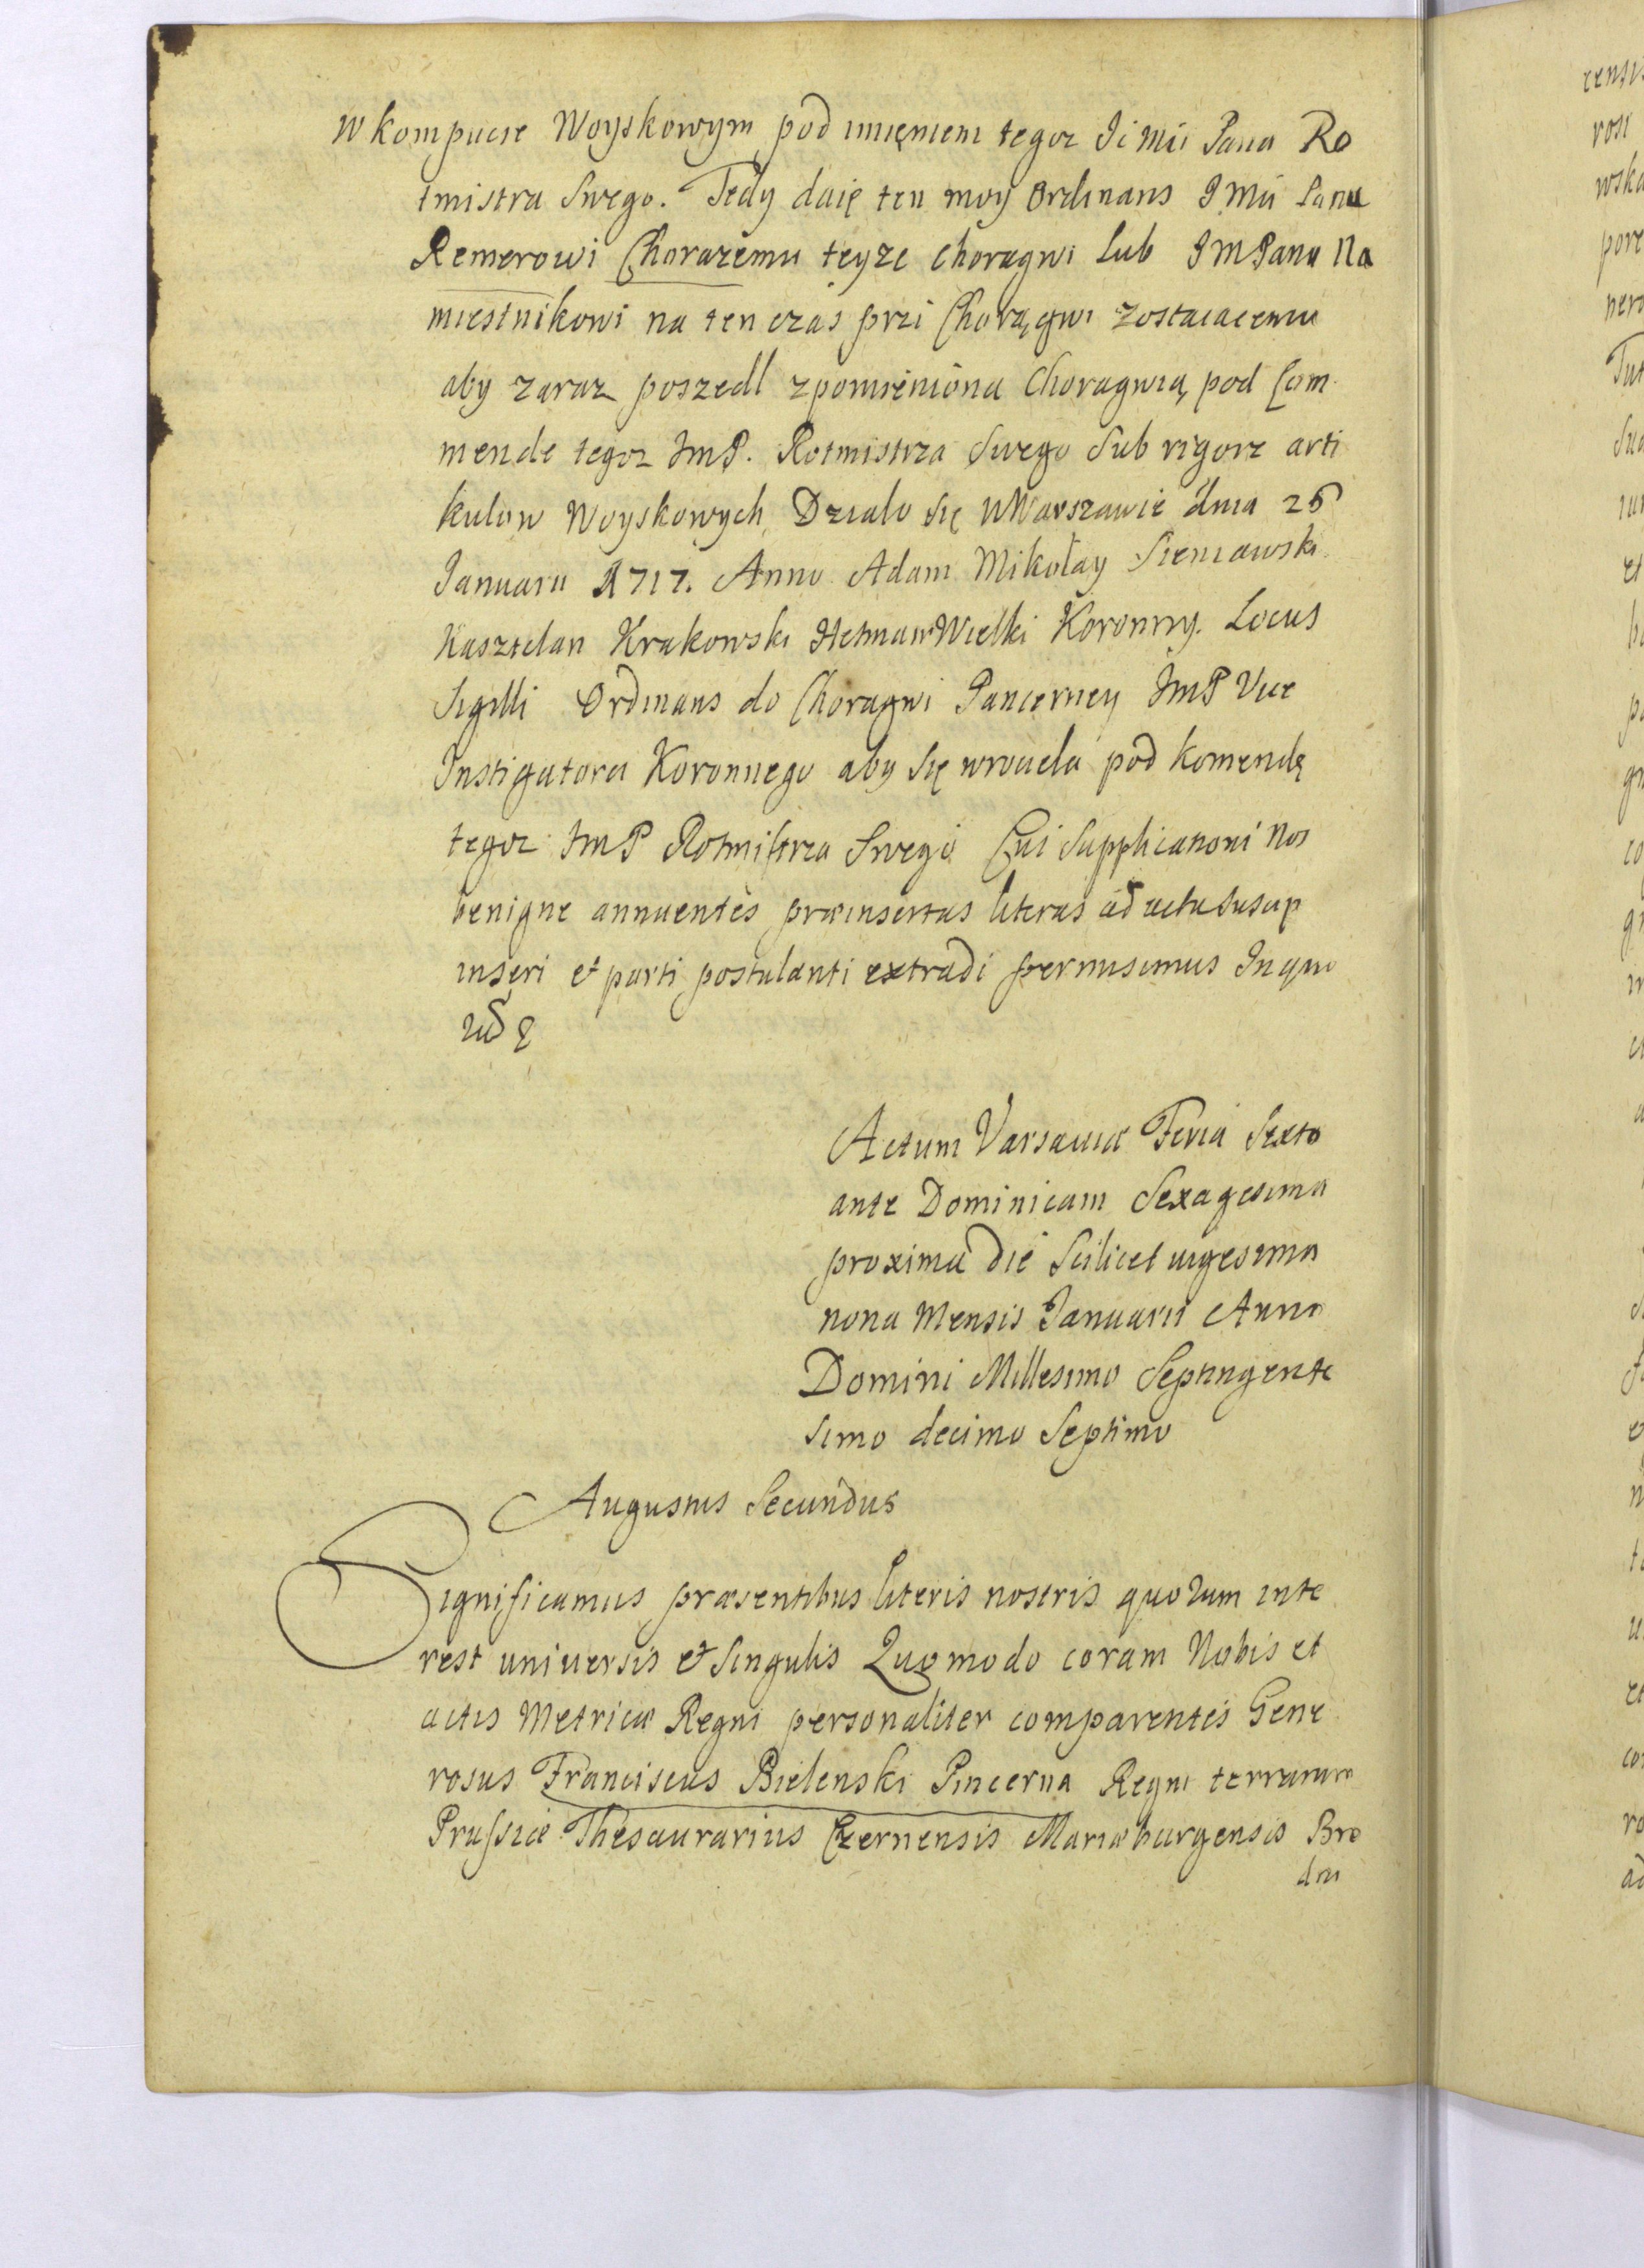 w kompucie Woyskowym pod imięniem tegoz Ji Mći Pana Ro
tmistra Swego. Tedy daię ten moy Ordinans J Mći Panu
Remerowi Chorazemu teyze Choragwi lub J M Panu Na
miestnikowi na ten czas przi Chorągwi zostaiacemu
aby zaraz poszedl z pomieniona Choragwią pod Com
mende tegoz JmP. Rotmistrza Swego Sub rigore arti
kulow Woyskowych Dzialo się w Warszawie dnia 26
Januarii 1717. Anno Adam Mikołay Sieniawski
Kasztelan Krakowski Hetman Wielki Koronny. Locus
Sigilli Ordinans do Choragwi Pancerney JmP Vice
Instigatora Koronnego aby się wrociela pod komendę
tegoz JmP Rotmistrza Swego Cui Supplicationi Nos
benigne annuentes præinsertas literas ad acta suscip
inseri et parti postulanti extradi permisimus In quo
Actum Varsaviæ Feria Sexto
ante Dominicam Sexagesima
proxima die Scilicet vigesima
nona Mensis Januarii Anno
Domini Millesimo Septingente
simo decimo Septimo
Augustus Secundus
Significamus præsentibus literis nostris quorum inte
rest universis et Singulis Quomodo coram Nobis et
actis Metricæ Regni personaliter comparentes Gene
rosus Franciscus Bielenski Pincerna Regni terrarum
Prussiæ Thesaurarius Czernensis Mariæburgensis Bro
dni